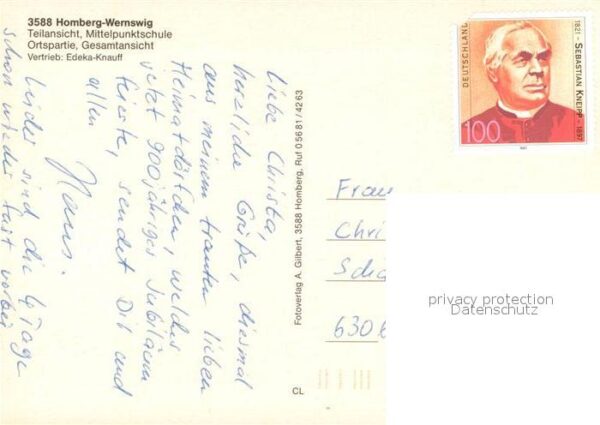 3588 Homberg-Wernswig
Teilansicht, Mittelpunktschule
Ortspartie, Gesamtansicht
Vertrieb: Edeka-Knauff
Liebe Christa,
herzliche Grüße, diesmal
aus meinem trauten lieben
Heimatdörfchen, welches
jetzt 900jähriges Jubiläum
feierte, sendet Dir und
allen
Hans.
Leider sind die 4 Tage
schon wieder fast vorbei
Fotoverlag A. Gilbert, 3588 Homberg, Ruf 05681/4263
CL
DEUTSCHLAND
1821 - SEBASTIAN KNEIPP - 1897
100
1997
Frau
Chri
Schö
6306
privacy protection
Datenschutz